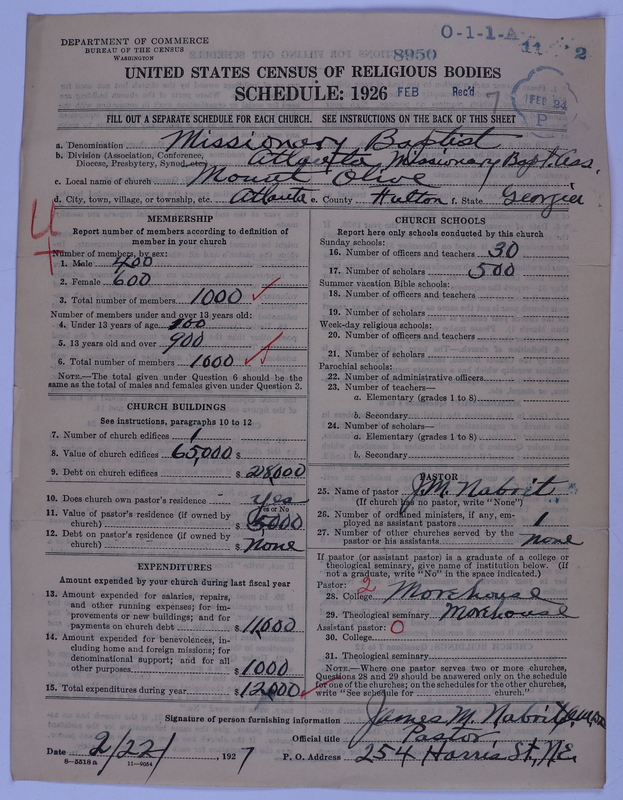 DEPARTMENT OF COMMERCE
BUREAU OF THE CENSUS
WASHINGTON
8950
O-1-1-A
11 2
UNITED STATES CENSUS OF RELIGIOUS BODIES
SCHEDULE: 1926 FEB Rec'd 7
FEB 24
P
FILL OUT A SEPARATE SCHEDULE FOR EACH CHURCH. SEE INSTRUCTIONS ON THE BACK OF THIS SHEET
a. Denomination Missionary Baptist
b. Division (Association, Conference, Diocese, Presbytery, Synod, etc.) Atlanta Missionary Bapt. Ass.
c. Local name of church Mount Olive
d. City, town, village, or township, etc. Atlanta e. County Fulton f. State Georgia
4
MEMBERSHIP
Report number of members according to definition of
member in your church
Number of members, by sex:
1. Male 400
2. Female 600
3. Total number of members 1000
Number of members under and over 13 years old:
4. Under 13 years of age 100
5. 13 years old and over 900
6. Total number of members 1000
NOTE.—The total given under Question 6 should be the
same as the total of males and females given under Question 3.
CHURCH BUILDINGS
See instructions, paragraphs 10 to 12
7. Number of church edifices 1
8. Value of church edifices 65,000 $
9. Debt on church edifices $ 28,000
10. Does church own pastor's residence yes
Yes or No
11. Value of pastor's residence (if owned by
church) $ 5000
12. Debt on pastor's residence (if owned by
church) $ None
EXPENDITURES
Amount expended by your church during last fiscal year
13. Amount expended for salaries, repairs,
and other running expenses; for im-
provements or new buildings; and for
payments on church debt $ 11,000
14. Amount expended for benevolences, in-
cluding home and foreign missions; for
denominational support; and for all
other purposes $ 1000
15. Total expenditures during year $ 12,000
CHURCH SCHOOLS
Report here only schools conducted by this church
Sunday schools:
16. Number of officers and teachers 30
17. Number of scholars 500
Summer vacation Bible schools:
18. Number of officers and teachers
19. Number of scholars
Week-day religious schools:
20. Number of officers and teachers
21. Number of scholars
Parochial schools:
22. Number of administrative officers
23. Number of teachers—
a. Elementary (grades 1 to 8)
b. Secondary
24. Number of scholars—
a. Elementary (grades 1 to 8)
b. Secondary
PASTOR
25. Name of pastor J.M. Nabrit
(If church has no pastor, write "None")
26. Number of ordained ministers, if any, em-
ployed as assistant pastors 1
27. Number of other churches served by the
pastor or his assistants none
If pastor (or assistant pastor) is a graduate of a college or
theological seminary, give name of institution below. (If
not a graduate, write "No" in the space indicated.)
Pastor: 2
28. College Morehouse
29. Theological seminary Morehouse
Assistant pastor: 0
30. College
31. Theological seminary
NOTE.—Where one pastor serves two or more churches,
Questions 28 and 29 should be answered only on the schedule
for one of the churches; on the schedules for the other churches,
write "See schedule for church."
Signature of person furnishing information James M. Nabrit
Official title Pastor
Date 2/22/, 1927 P. O. Address 254 Harris St., N.E.
8—5518 a 11—9054